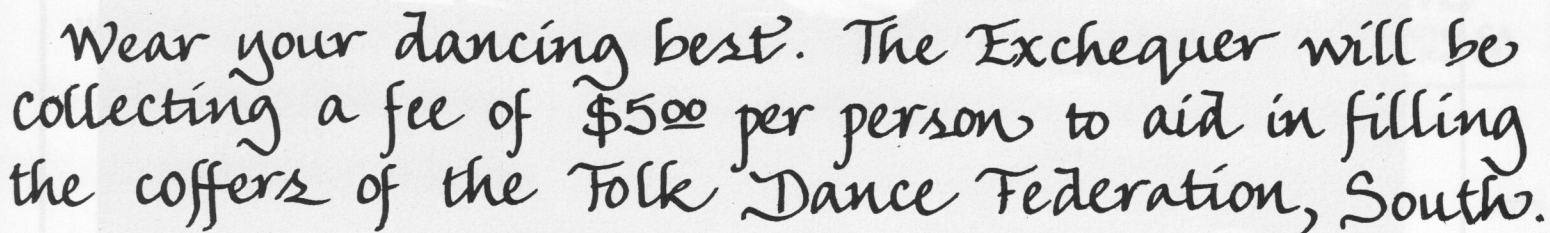 Wear your dancing best. The Exchequer will be
collecting a fee of $500 per person to aid in filling
the coffers of the Folk Dance Federation, South.